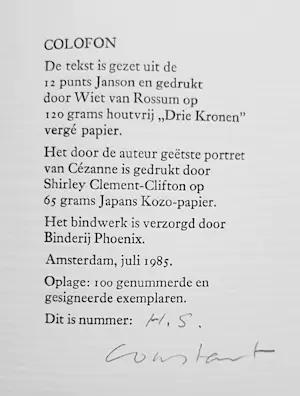 COLOFON
De tekst is gezet uit de
12 punts Janson en gedrukt
door Wiet van Rossum op
120 grams houtvrij „Drie Kronen”
vergé papier.
Het door de auteur geëtste portret
van Cézanne is gedrukt door
Shirley Clement-Clifton op
65 grams Japans Kozo-papier.
Het bindwerk is verzorgd door
Binderij Phoenix.
Amsterdam, juli 1985.
Oplage: 100 genummerde en
gesigneerde exemplaren.
Dit is nummer: H.S.
Constant